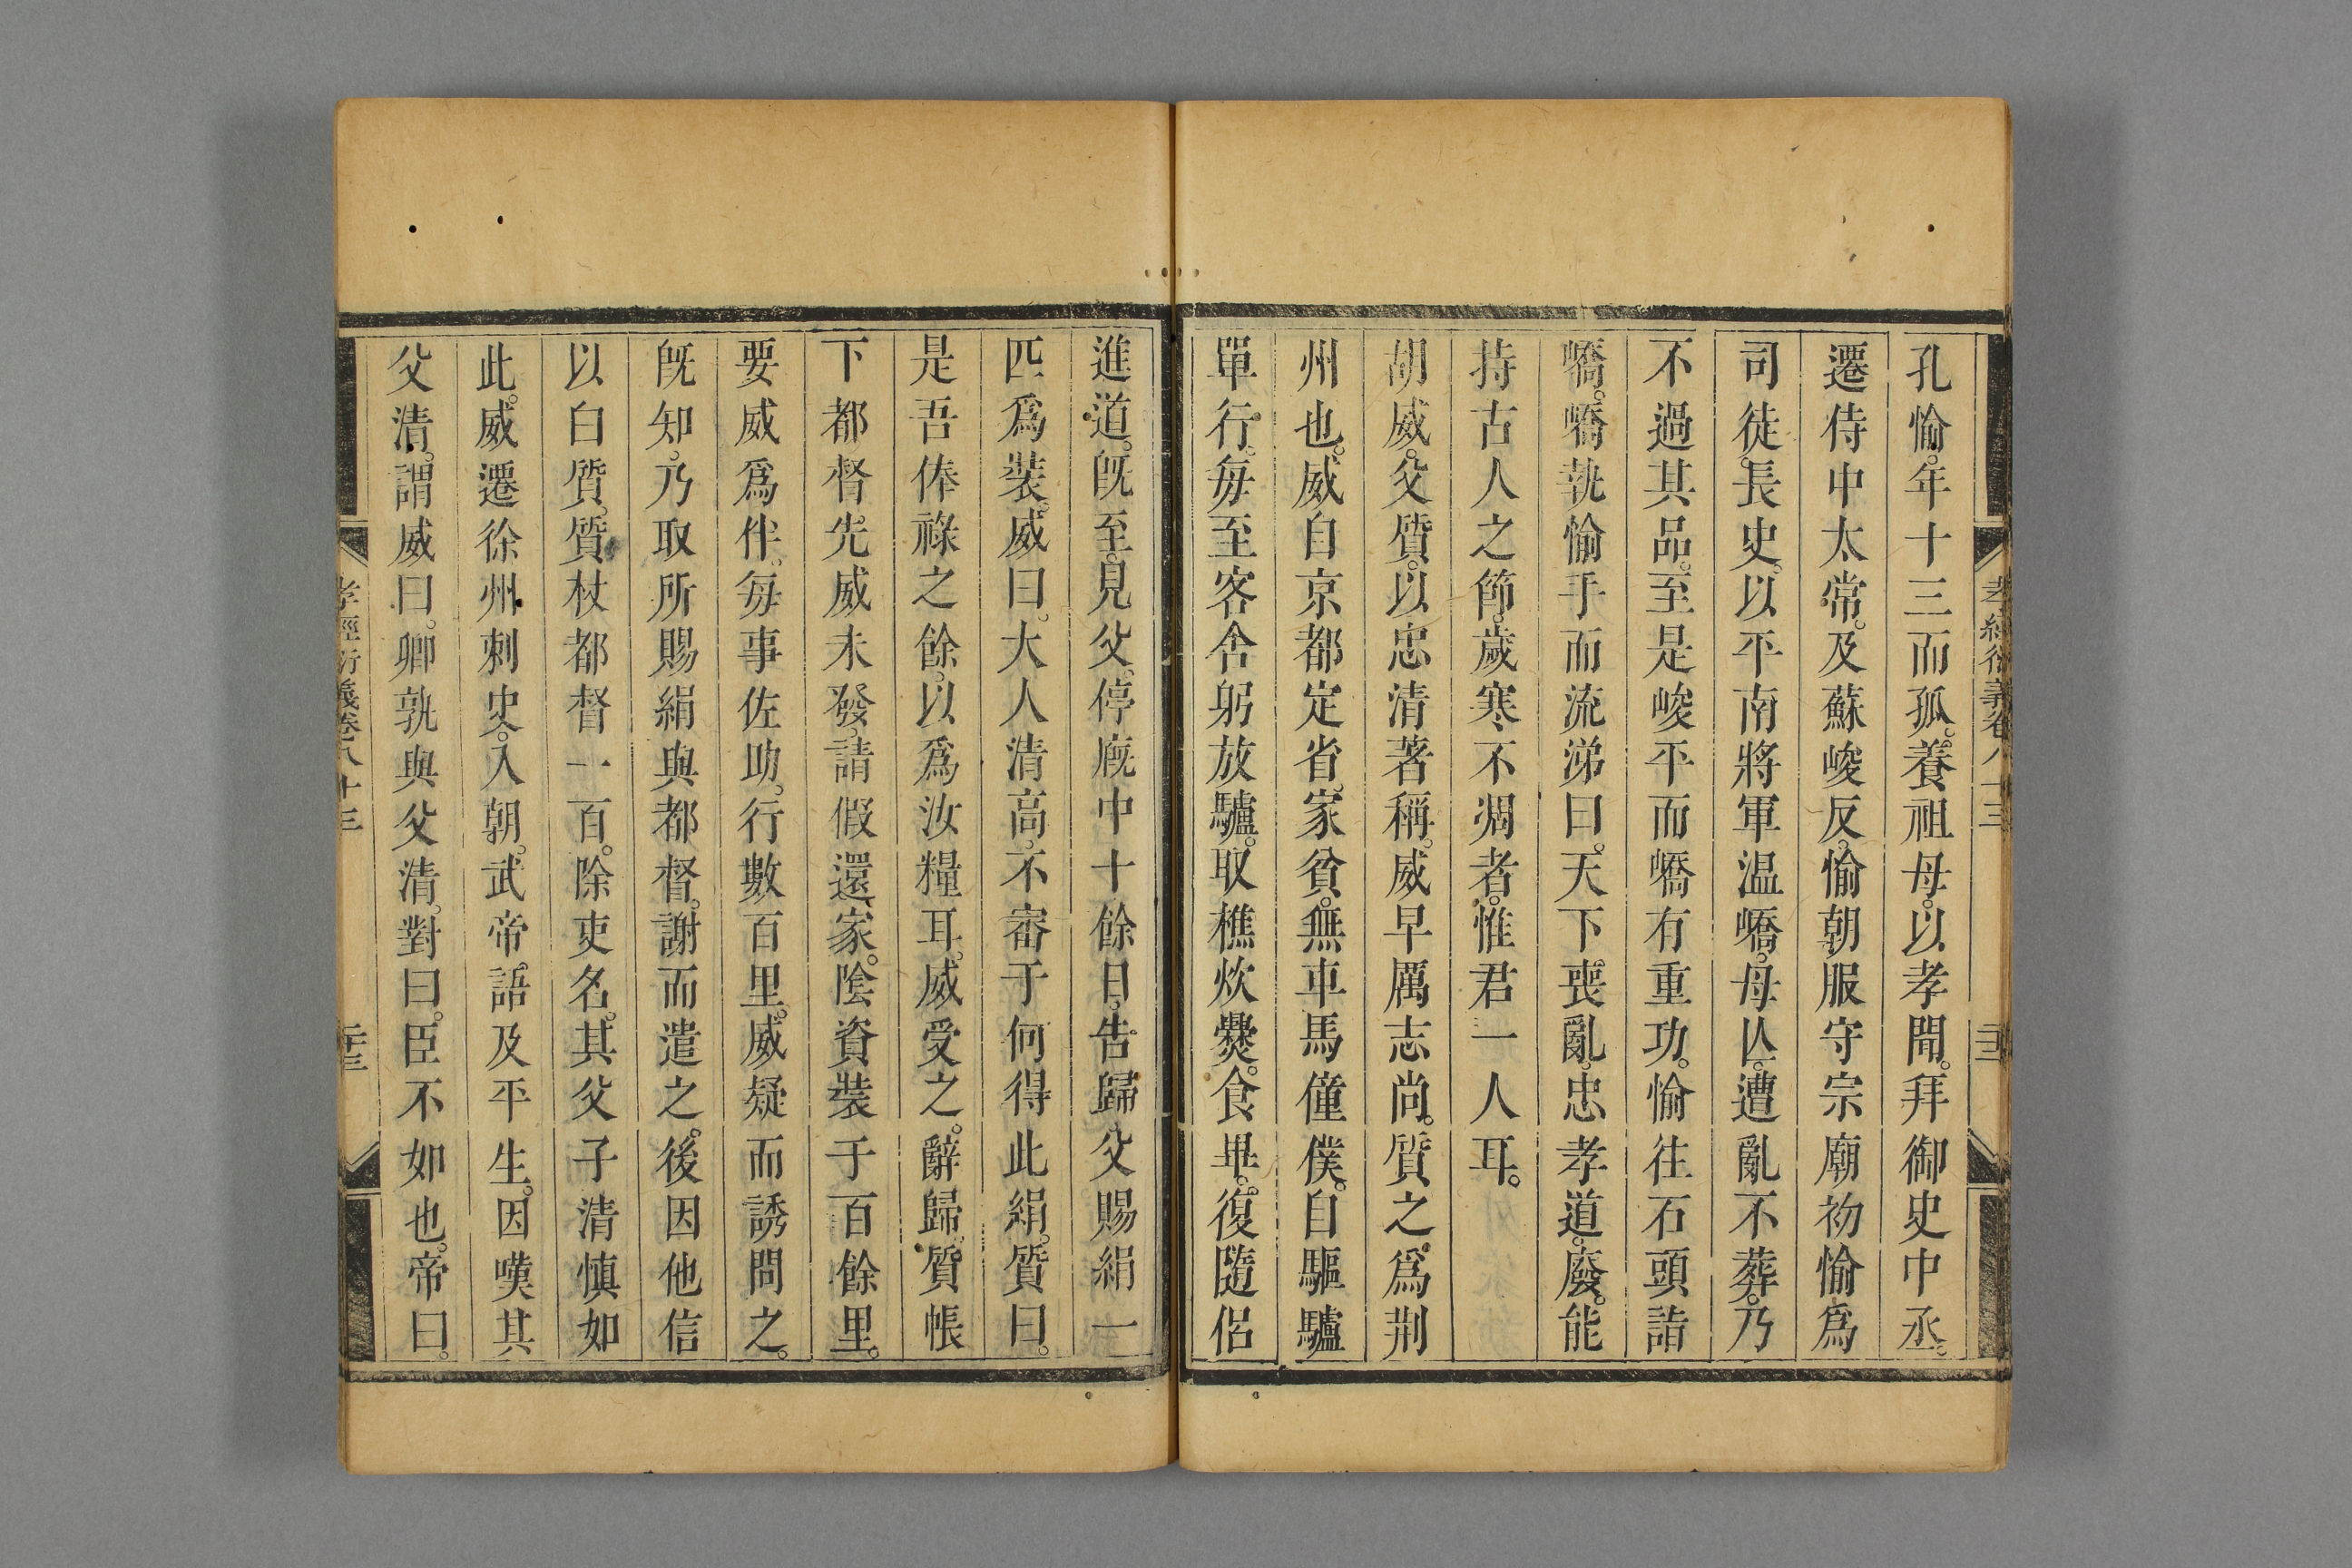 孔愉。年十三而孤。養祖母。以孝聞。拜御史中丞。
遷侍中太常。及蘇峻反。愉朝服守宗廟初愉爲
司徒。長史。以平南將軍温嶠。母亾。遭亂不葬。乃
不過其品。至是峻平而嶠有重功。愉往石頭詣
嶠。嶠執愉手而流涕曰。天下喪亂。忠孝道。廢。能
持古人之節。歲寒不凋者。惟君一人耳。
胡威。父質。以忠清著稱。威早厲志尚。質之。爲荆
州也。威自京都定省。家貧。無車馬僮僕。自驅驢
單行。毎至客舍躬放驢。取樵炊爨。食畢。復隨侶
進道。旣至。見父。停廐中十餘日。告歸父賜絹一
匹爲裝。威曰。大人清高。不審于何得此絹。質曰。
是吾俸祿之餘。以爲汝糧耳。威受之。辭歸。質帳
下都督先威未發。請假還家。陰資裝于百餘里。
要威爲伴。毎事佐助。行數百里。威疑而誘問之。
旣知。乃取所賜絹與都督。謝而遣之。後因他信
以白質。質杖都督一百。除吏名。其父子清慎如
此。威遷徐州刺史。入朝。武帝。語及平生。因嘆其
父清。謂威曰。卿孰與父清。對曰。臣不如也。帝曰。
孝經衍義卷八十三